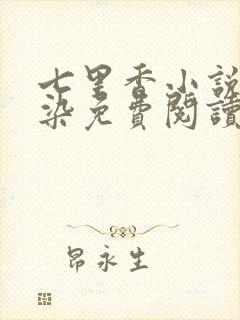 七里香小說
染免費閱讀
昂永生